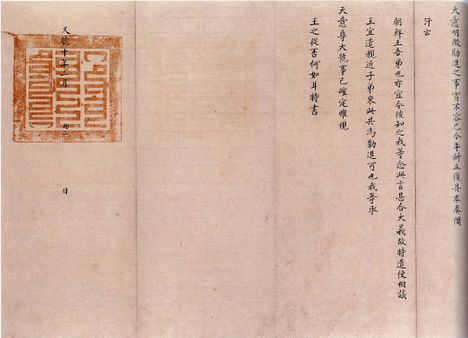 天意明徵勸進之事實不容已今年新正復具本奏聞
汗云
朝鮮王吾弟也亦宜令彼知之我等念此言甚合大義故特遣使相議
王宜遣親近子弟來此共為勸進可也我等承
天意尊大號事已確定視
王之從否何如耳特書
天聰十年二月 日